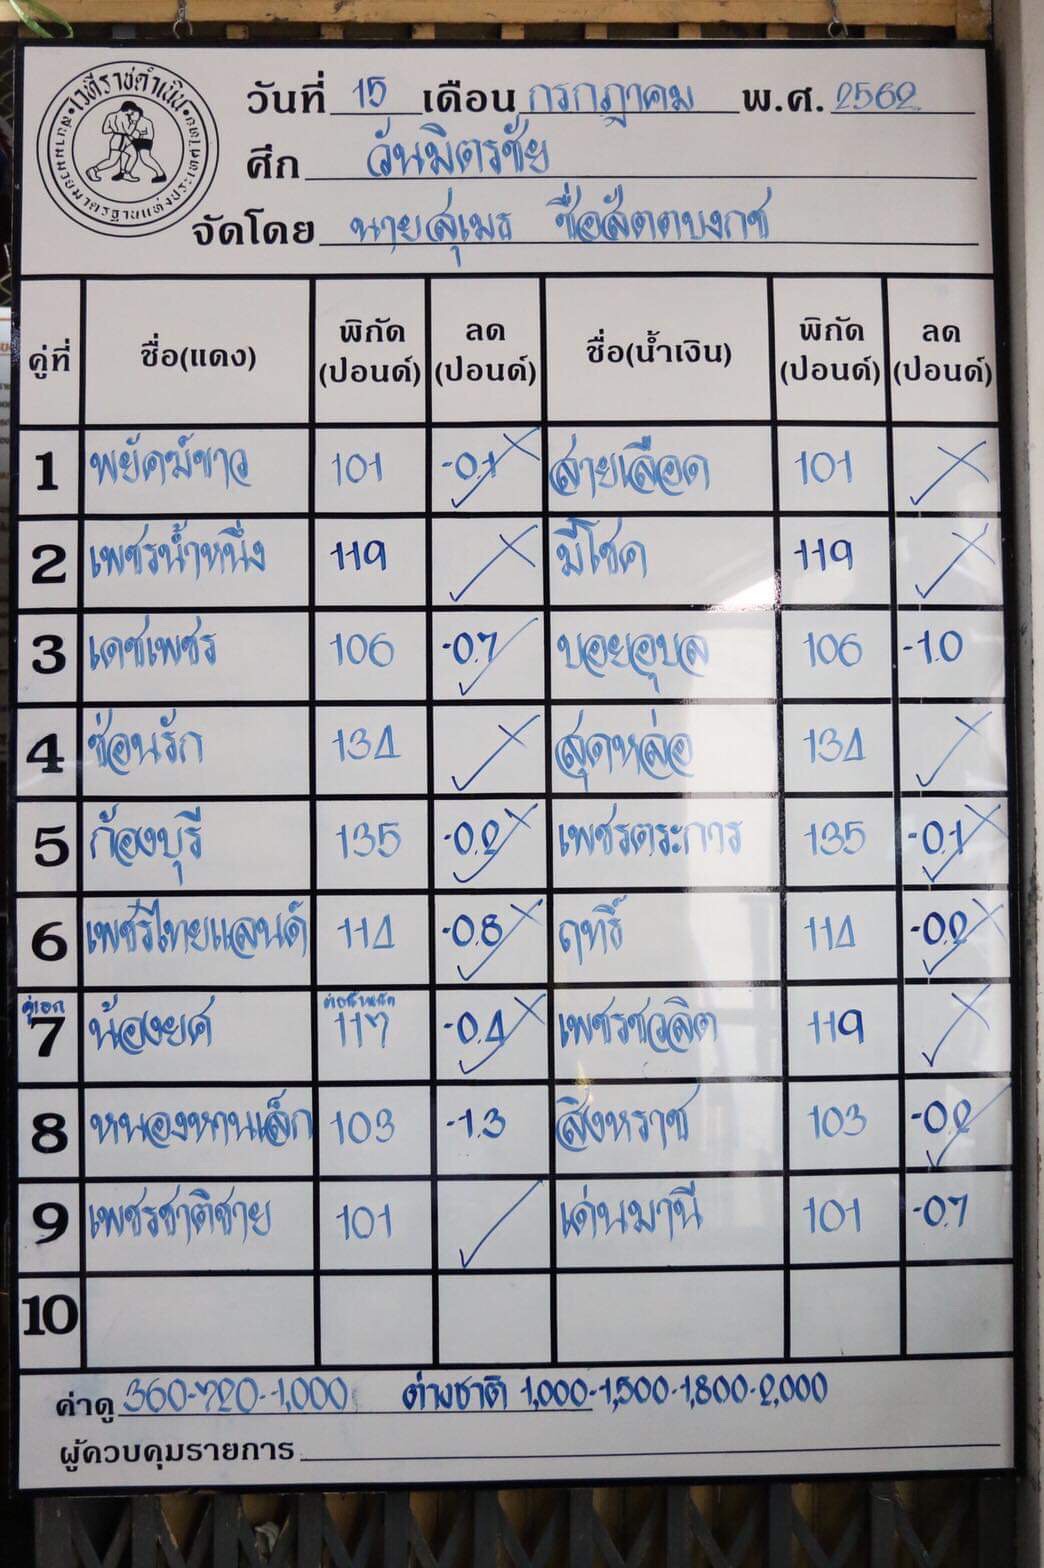 เวทีราชดำเนิน
สนามมวยมาตรฐานแห่งประเทศไทย
วันที่ 15 เดือน กรกฎาคม พ.ศ. 2562
ศึก วันมิตรชัย
จัดโดย นายสุเมธ ซื่อสัตตบงกช
คู่ที่ ชื่อ(แดง) พิกัด (ปอนด์) ลด (ปอนด์) ชื่อ(น้ำเงิน) พิกัด (ปอนด์) ลด (ปอนด์)
1 พยัคฆ์ขาว 101 -0.1 สายเลือด 101
2 เพชรน้ำหนึ่ง 119 มีโชค 119
3 เดชเพชร 106 -0.7 บอยอุบล 106 -1.0
4 ซ่อนรัก 134 สุดหล่อ 134
5 ก้องบุรี 135 -0.2 เพชรตระการ 135 -0.1
6 เพชรไทยแลนด์ 114 -0.8 ฤทธิ์ 114 -0.2
คู่เอก ต่อน้ำหนัก
7 น้องยศ 117 -0.4 เพชรชวลิต 119
8 หนองหานเล็ก 103 -1.3 สิงหราช 103 -0.2
9 เพชรชาติชาย 101 เด่นมานี 101 -0.7
10
ค่าดู 360-720-1,000 ต่างชาติ 1,000-1,500-1,800-2,000
ผู้ควบคุมรายการ